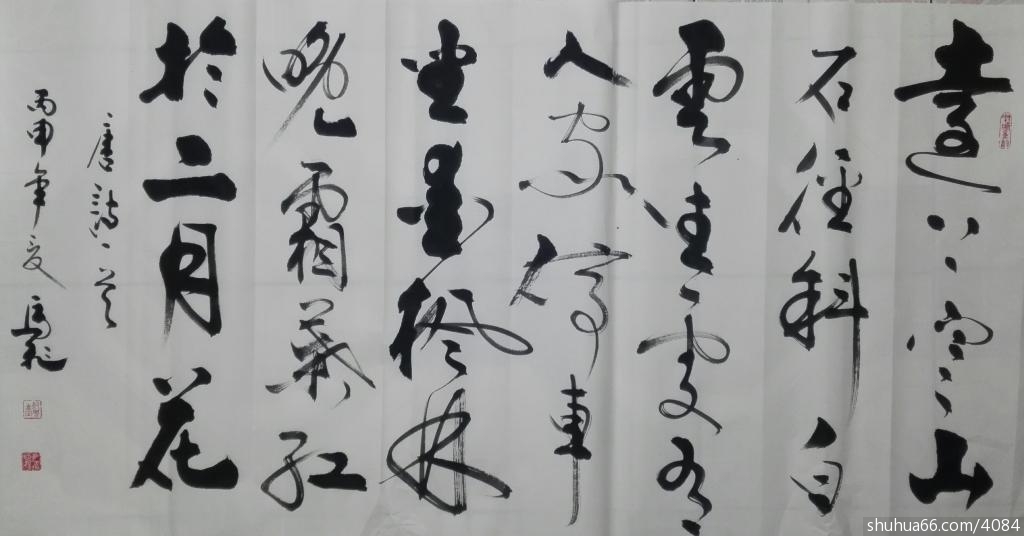 遠上寒山
石徑斜白
雲生處有
人家停車
坐愛楓林
晚霜葉紅
於二月花
唐詩一首
丙申年夏
shuhua66.com/4084